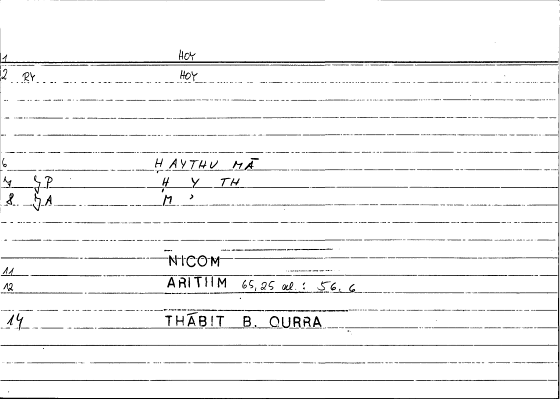 1 HOY
2 RY HOY
6 ḤAYTHU MĀ
7 P Ḥ Y TH
8 A M ʾ
NICOM
11
12 ARITIIM 65,25 al.: 56.6
14 THĀBIT B. QURRA